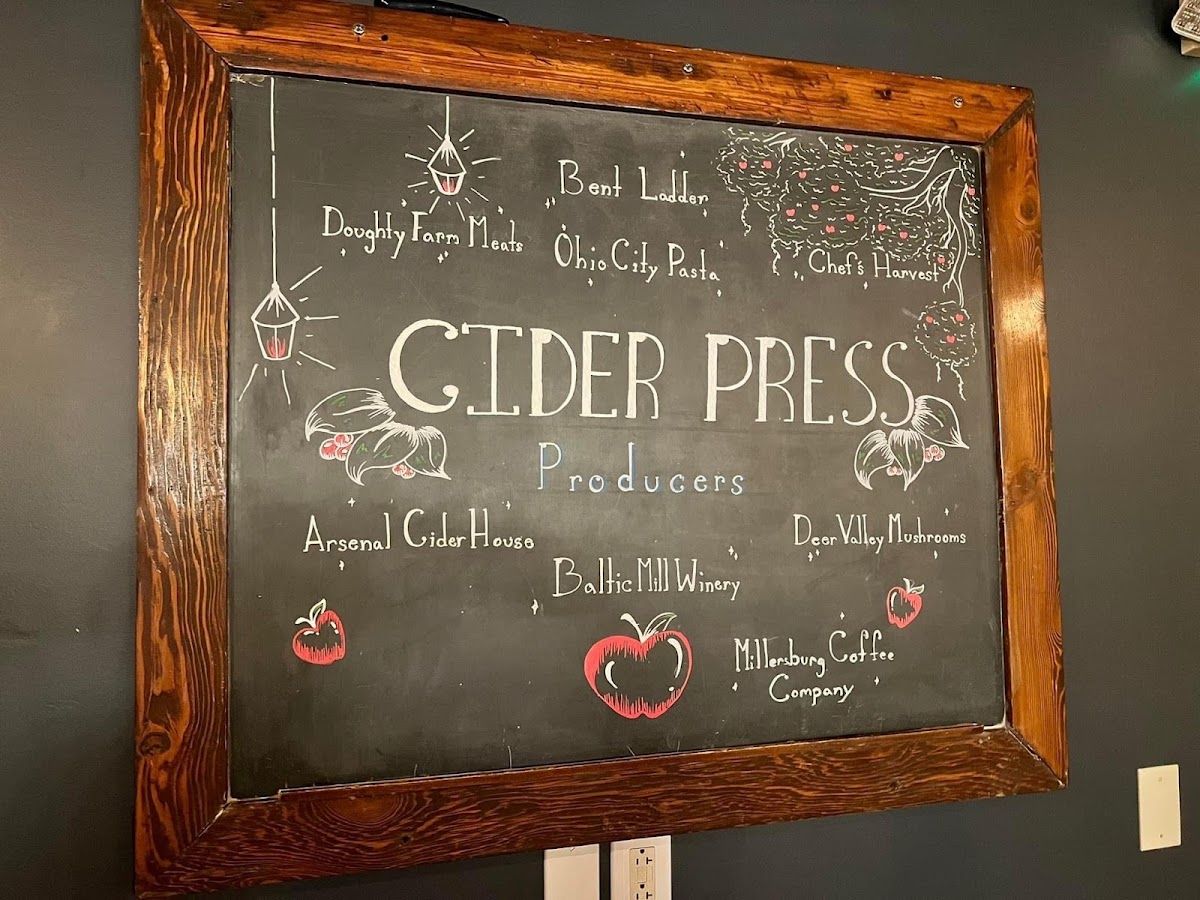 Bent Ladder
Doughty Farm Meats
Ohio City Pasta
Chef's Harvest
CIDER PRESS
Producers
Arsenal Cider House
Deer Valley Mushrooms
Baltic Mill Winery
Millersburg Coffee
Company